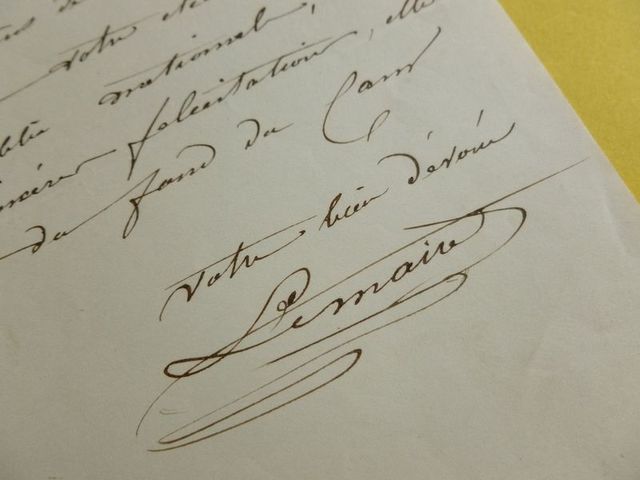 votre
nationale,
félicitation, elle
du fond du Cœur
votre bien dévoué
Lemaire